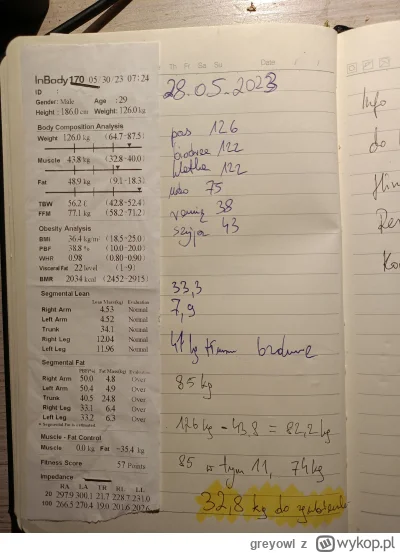 InBody170 05/30/23 07:24
ID :
Gender: Male Age : 29
Height : 186.0 cm Weight: 126.0 kg
Body Composition Analysis
Weight 126.0 kg (64.7~87.5)
Muscle 43.8 kg (32.8~40.0)
Fat 48.9 kg (9.1~18.3)
TBW 56.2 ℓ (42.8~52.4)
FFM 77.1 kg (58.2~71.2)
Obesity Analysis
BMI 36.4 kg/m² (18.5~25.0)
PBF 38.8 % (10.0~20.0)
WHR 0.98 (0.80~0.90)
Visceral Fat 22 level (1~9)
BMR 2034 kcal (2452~2915)
Segmental Lean
Lean Mass(kg) Evaluation
Right Arm 4.53 Normal
Left Arm 4.52 Normal
Trunk 34.1 Normal
Right Leg 12.04 Normal
Left Leg 11.96 Normal
Segmental Fat
PBF(%) Fat Mass(kg) Evaluation
Right Arm 50.0 4.8 Over
Left Arm 50.4 4.9 Over
Trunk 40.5 24.8 Over
Right Leg 33.1 6.4 Over
Left Leg 33.2 6.3 Over
* Segmental Fat is estimated
Muscle - Fat Control
Muscle 0.0 kg Fat -35.4 kg
Fitness Score 57 Points
Impedance
RA LA TR RL LL
20 297.9 300.1 21.7 228.7 231.0
100 266.5 270.4 19.0 201.6 202.6
Th Fr Sa Su Date / /
28.05.2023
pas 126
biodra 122
klatka 122
udo 75
ramię 38
szyja 43
33,3
7,9
41 kg
85 kg
126 kg - 43,8 = 82,2 kg
85 w tym 11, 74 kg
32,8 kg do
Info
do
greyowl z wykop.pl